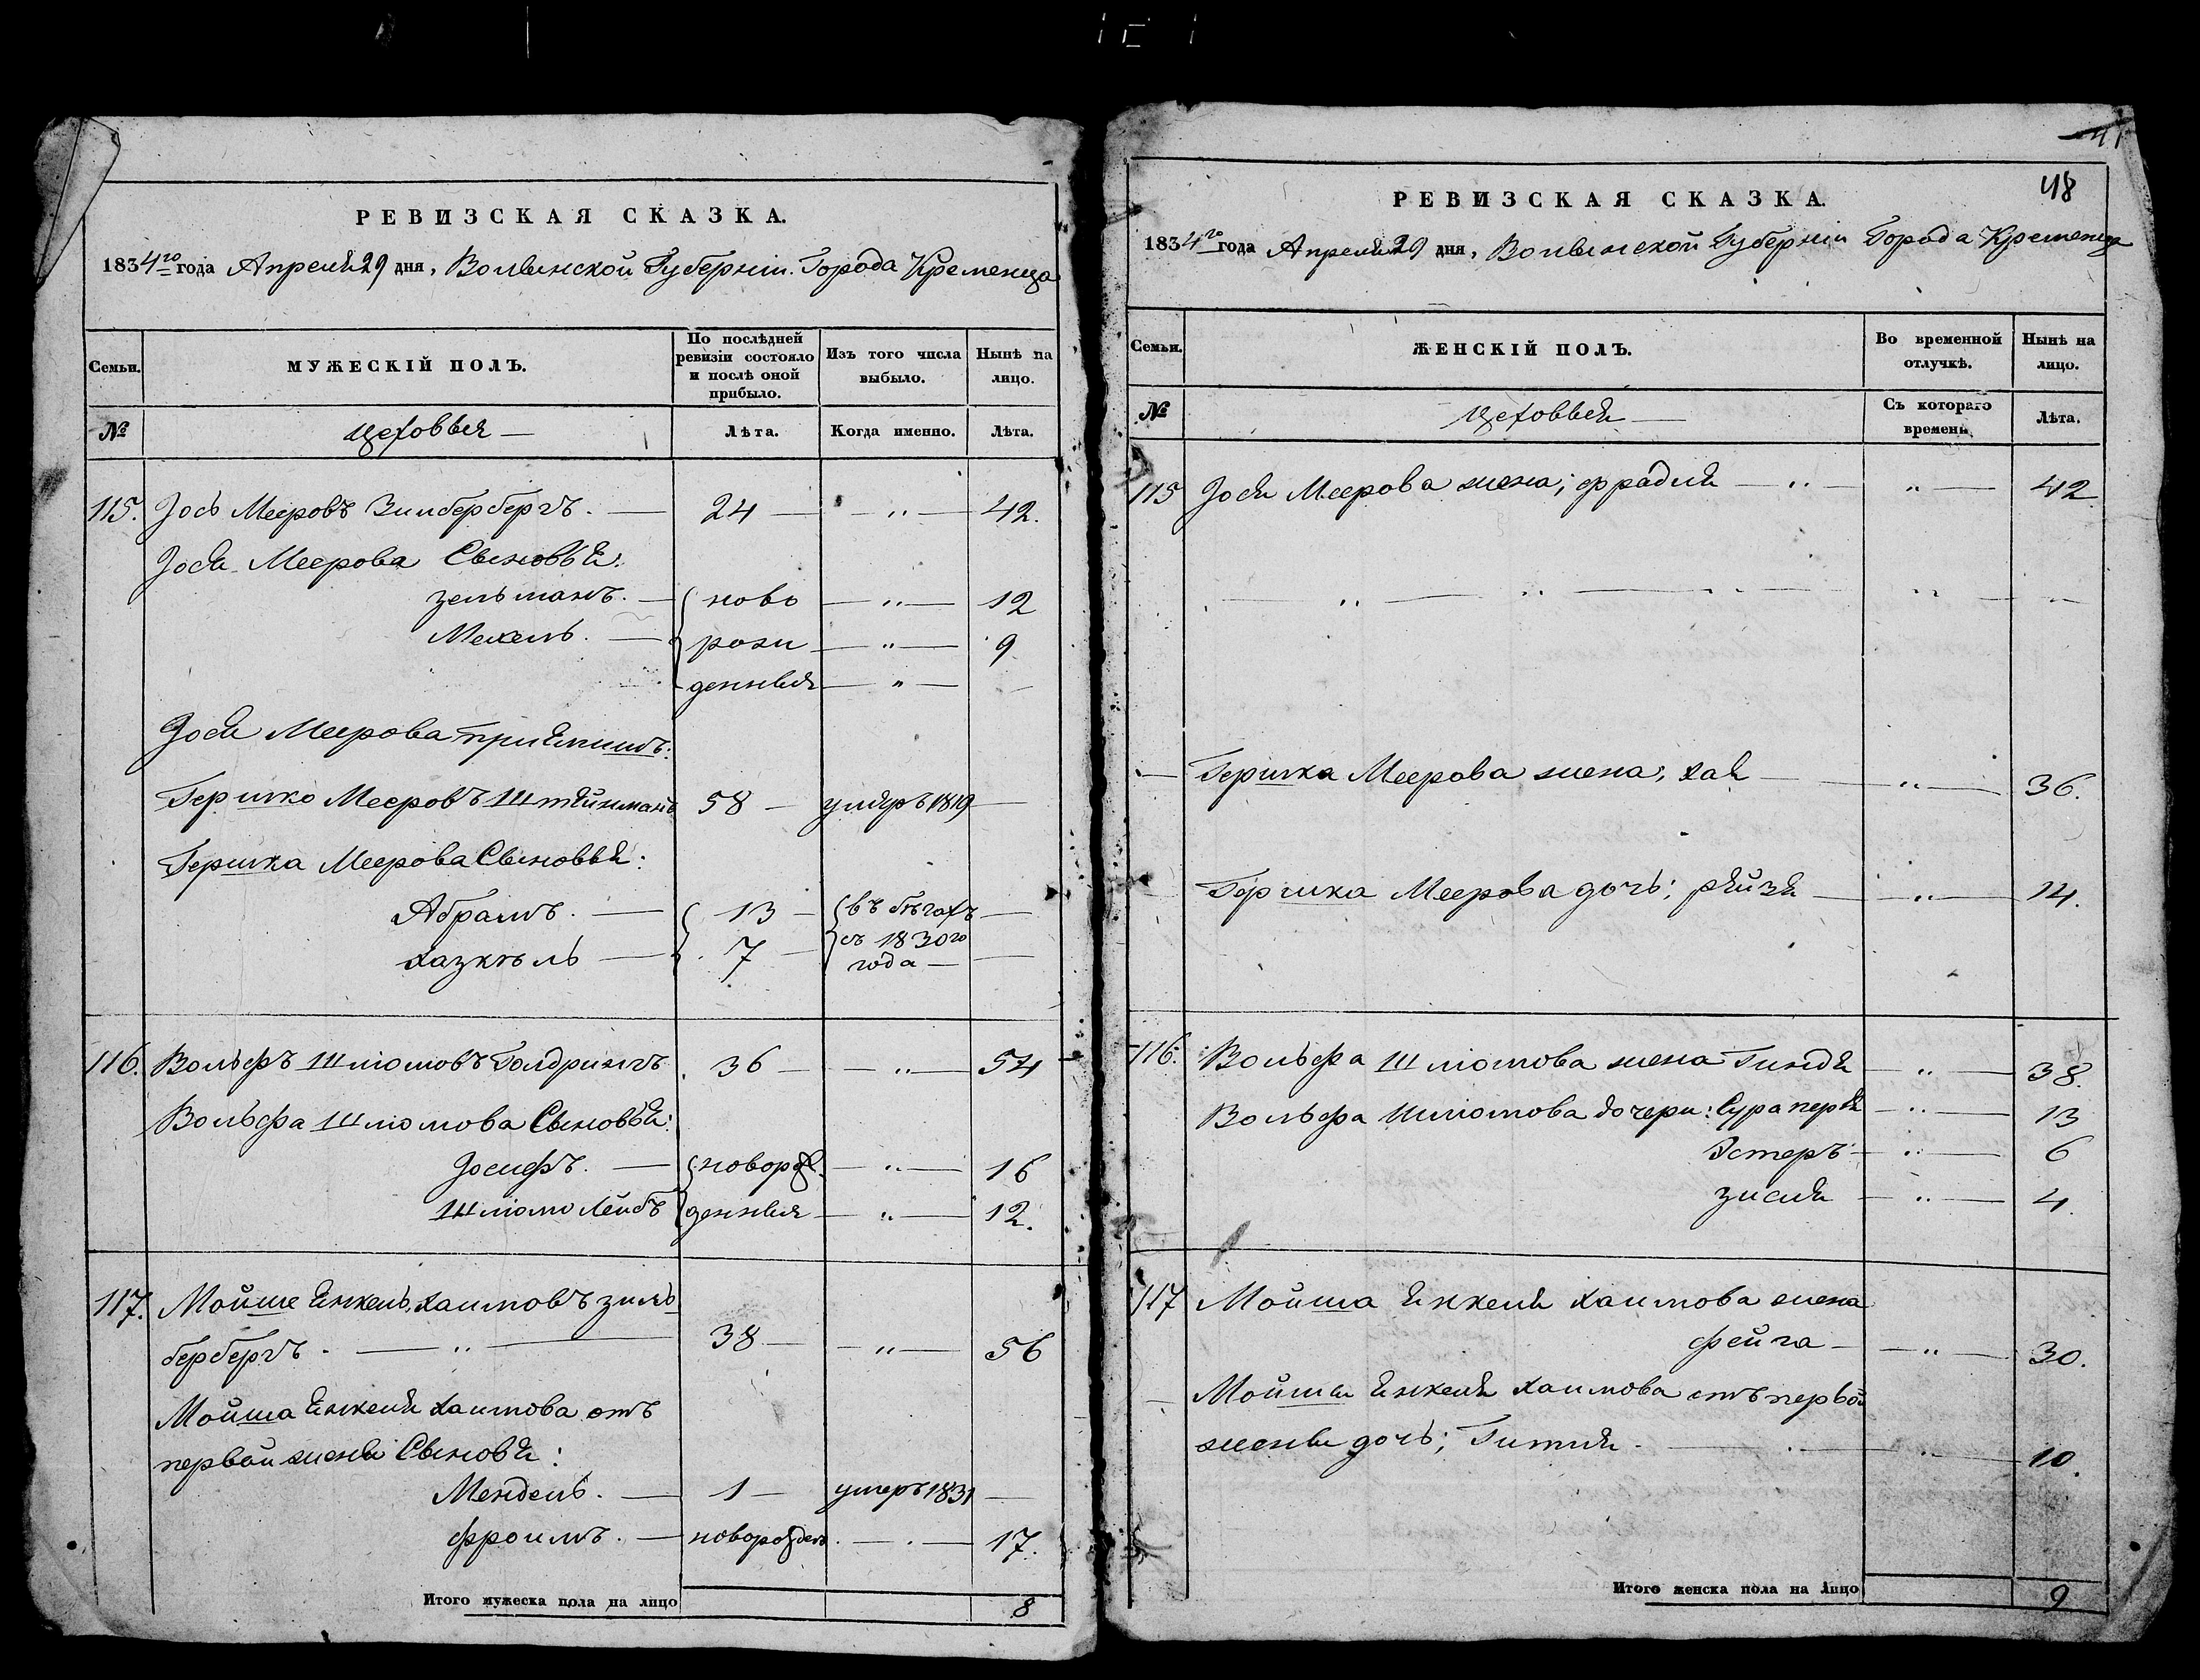 РЕВИЗСКАЯ СКАЗКА.
1834го года Апреля 29 дня, Волынской Губерніи. Города Кременца
Семьи.
МУЖЕСКІЙ ПОЛЪ.
По послѣдней ревизіи состояло и послѣ оной прибыло.
Изъ того числа выбыло.
Нынѣ на лицо.
№ цеховыя — Лѣта. Когда именно. Лѣта.
115. Іось Мееровъ Зимбербергъ. — 24 — — „ — 42.
Іося Меерова Сыновья:
Зельманъ. — ново — „ — 12
Мехель. — рожи — „ — 9
денныя — „ — —
Іося Меерова приемышъ:
Гершко Мееровъ Штейнманъ 58 — умеръ 1819 —
Гершка Меерова Сыновья:
Абрамъ. — 13 — въ бѣгахъ —
Хазкѣль — 7 — съ 1830го года — —
116. Вольфъ Шлiомовъ Голдрингъ. 36 — — „ — 54
Вольфа Шлiомова Сыновья:
Іосифъ. — новорож. — „ — 16
Шлiомо Лейбъ денныя — „ — 12.
117. Мойше Янкель Хаимовъ Зиль
бербергъ. — „ — 38 — — „ — 56
Мойша Янкеля Хаимова отъ
первой жены Сыновья:
Мендель. — 1 — умеръ 1831 —
Фроимъ. — новорожден. — . — 17.
Итого мужеска пола на лицо 8
41
48
РЕВИЗСКАЯ СКАЗКА.
1834го года Апреля 29 дня, Волынской Губерніи Города Кременца
Семьи.
ЖЕНСКІЙ ПОЛЪ.
Во временной отлучкѣ.
Нынѣ на лицо.
№ цеховыя — Съ котораго времени. Лѣта.
115 Іося Меерова жена; Фрадля — „ — „ — 42
— Гершка Меерова жена; Хая — „ — 36.
Гершка Меерова дочь; Рейзя — „ — 14.
116. Вольфа Шлiомова жена Гиндя — „ — 38.
Вольфа Шлiомова дочери: Сура Перля — „ — 13
Эстеръ — „ — 6
Зисля — „ — 4
117 Мойша Янкеля Хаимова жена
Фейга — — „ — 30.
— Мойши Янкеля Хаимова отъ первой
жены дочь; Гитля. — „ — 10.
Итого женска пола на лицо 9